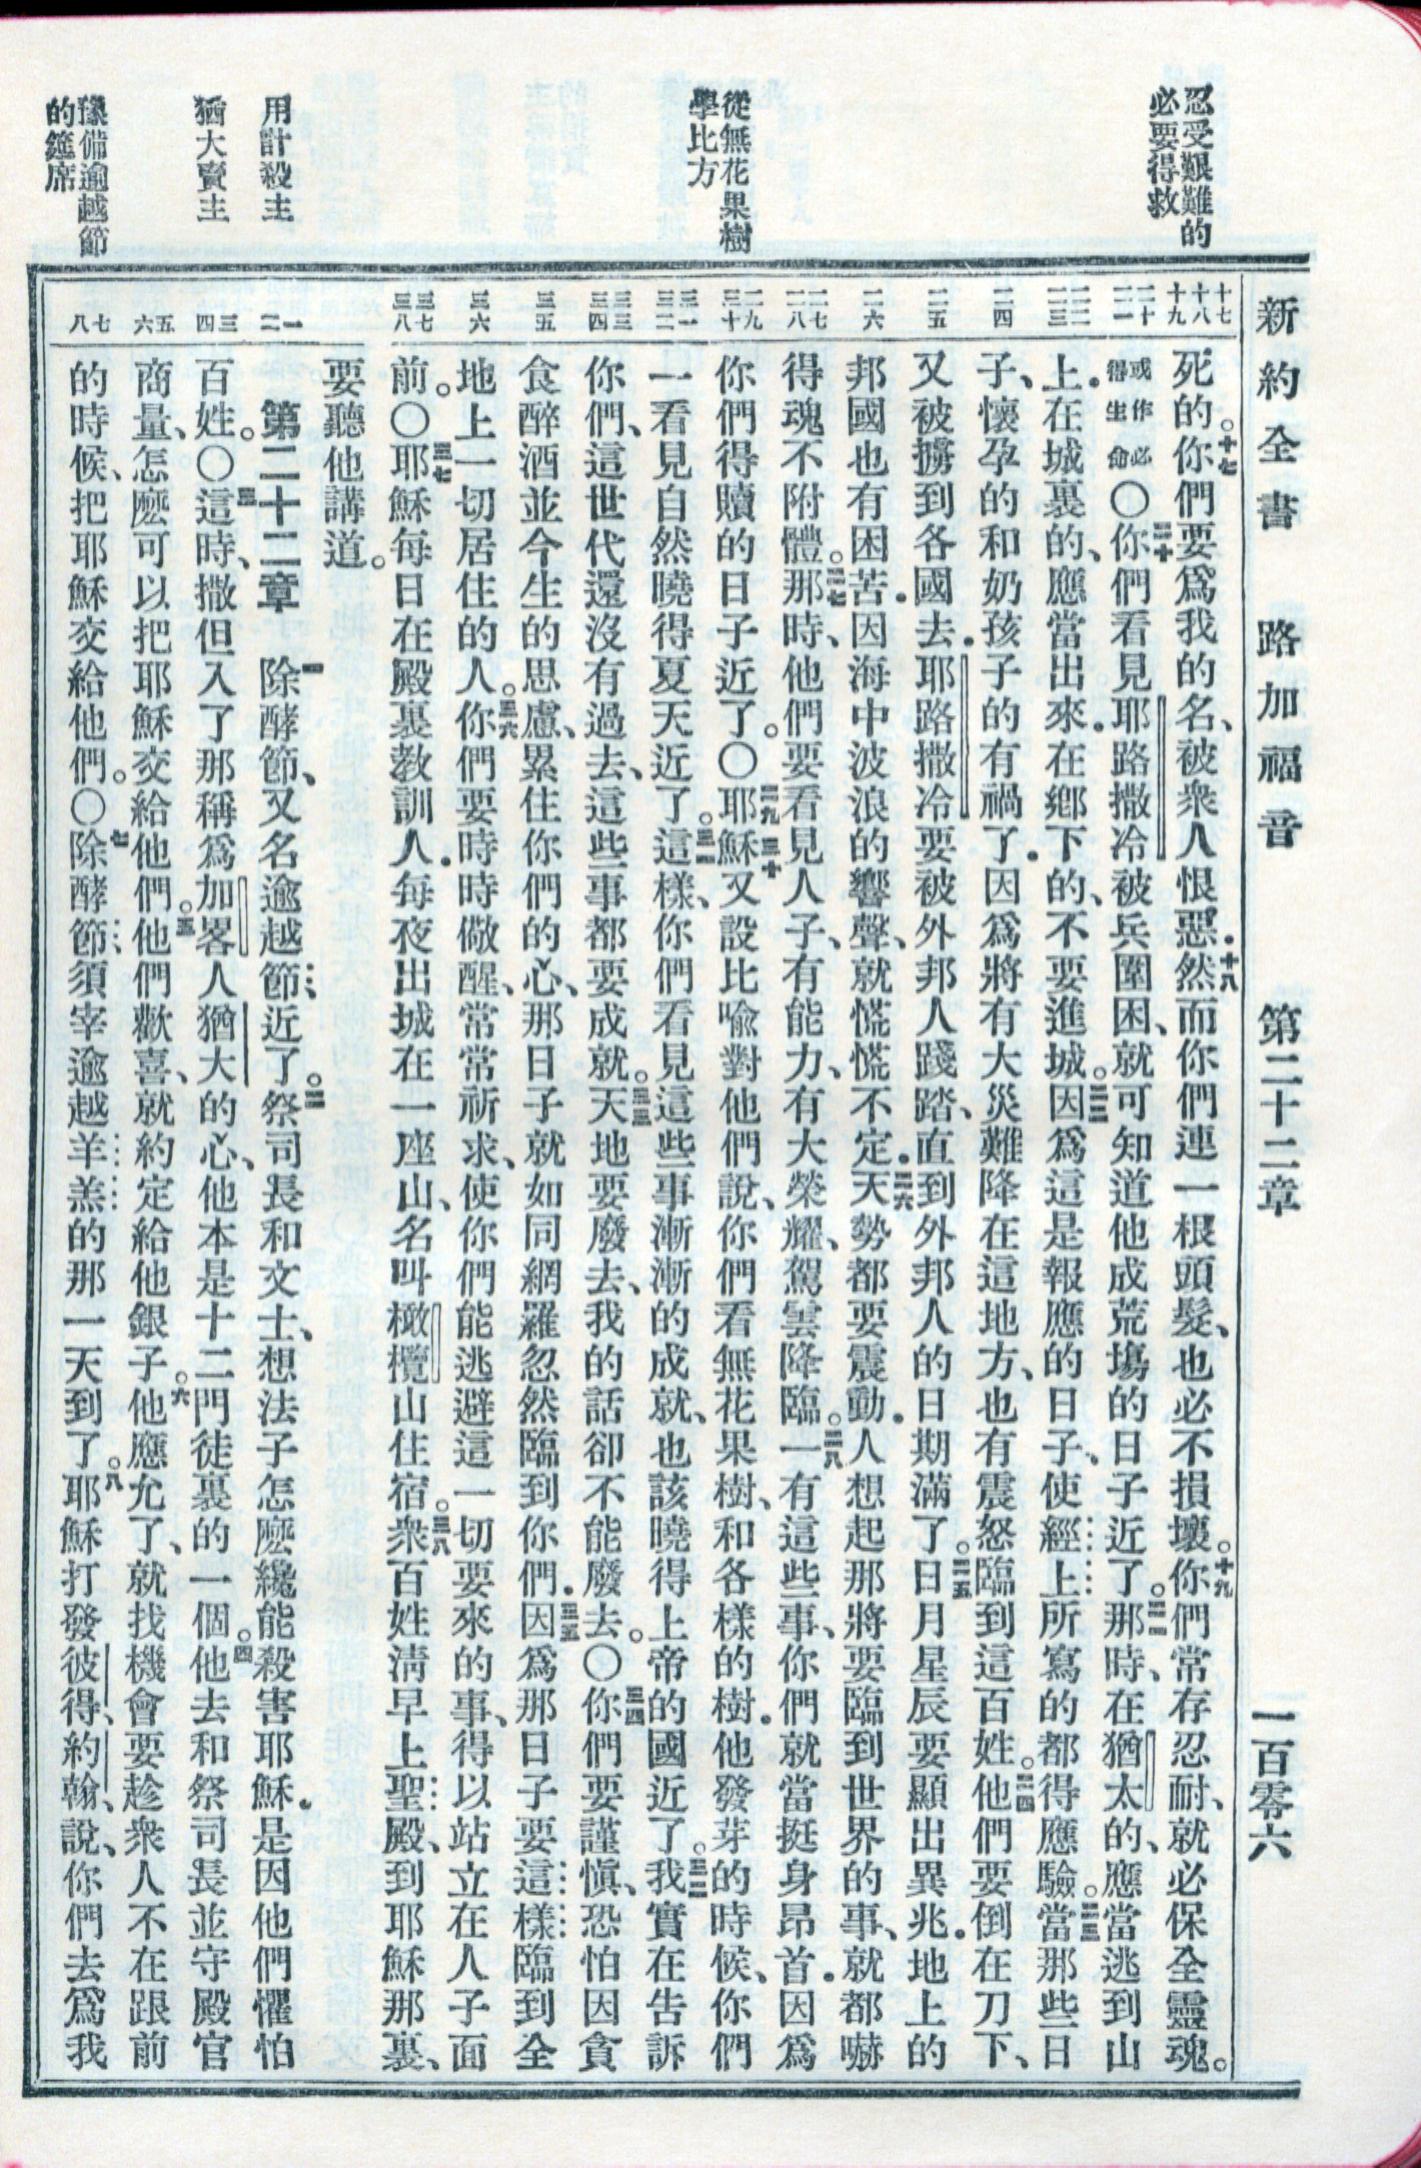 新約全書 路加福音 第二十二章 一百零六
忍受艱難的
必要得救
從無花果樹
學比方
用計殺主
猶大賣主
豫備逾越節
的筵席
十七 十八 十九
死的。十七你們要爲我的名、被衆人恨惡.十八然而你們連一根頭髮、也必不損壞。十九你們常存忍耐、就必保全靈魂。
二十 二一
或作必得生命〇二十你們看見耶路撒冷被兵圍困、就可知道他成荒塲的日子近了。二一那時、在猶太的、應當逃到山
二二 二三
上.在城裏的、應當出來.在鄉下的、不要進城。二二因爲這是報應的日子、使經上所寫的都得應驗。二三當那些日
二四
子、懷孕的和奶孩子的有禍了.因爲將有大災難降在這地方、也有震怒臨到這百姓。二四他們要倒在刀下、
二五
又被擄到各國去.耶路撒冷要被外邦人踐踏、直到外邦人的日期滿了。二五日月星辰要顯出異兆.地上的
二六
邦國也有困苦.因海中波浪的響聲、就慌慌不定.二六天勢都要震動.人想起那將要臨到世界的事、就都嚇
二七 二八
得魂不附體。二七那時、他們要看見人子、有能力、有大榮耀、駕雲降臨。二八一有這些事、你們就當挺身昂首.因爲
二九 三十
你們得贖的日子近了。〇二九耶穌三十又設比喻對他們說、你們看無花果樹、和各樣的樹.他發芽的時候、你們
三一 三二
一看見自然曉得夏天近了。三一這樣、你們看見這些事漸漸的成就、也該曉得上帝的國近了。三二我實在告訴
三三 三四
你們、這世代還沒有過去、這些事都要成就。三三天地要廢去、我的話卻不能廢去。〇三四你們要謹愼、恐怕因貪
三五
食醉酒並今生的思慮、累住你們的心、那日子就如同網羅忽然臨到你們.三五因爲那日子要這樣臨到全
三六
地上一切居住的人。三六你們要時時儆醒、常常祈求、使你們能逃避這一切要來的事、得以站立在人子面
三七 三八
前。〇三七耶穌每日在殿裏敎訓人.每夜出城在一座山、名叫橄欖山住宿。三八衆百姓淸早上聖殿、到耶穌那裏、
要聽他講道。
一 二
第二十二章 一除酵節、又名逾越節近了。二祭司長和文士、想法子怎麽纔能殺害耶穌.是因他們懼怕
三 四
百姓。〇三這時、撒但入了那稱爲加畧人猶大的心、他本是十二門徒裏的一個。四他去和祭司長並守殿官
五 六
商量、怎麽可以把耶穌交給他們。五他們歡喜、就約定給他銀子。六他應允了、就找機會要趁衆人不在跟前
七 八
的時候、把耶穌交給他們。〇七除酵節、須宰逾越羊羔的那一天到了。八耶穌打發彼得、約翰、說、你們去爲我